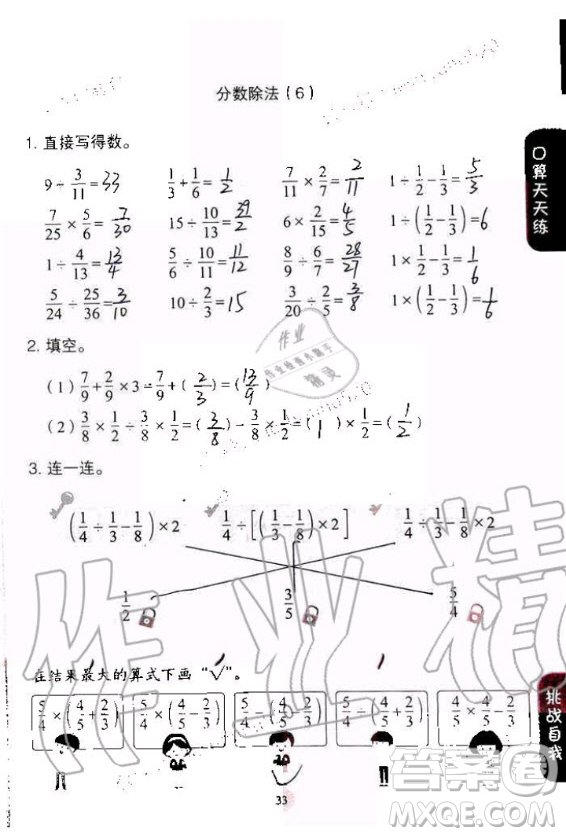 分数除法(6)
口算天天练
1. 直接写得数。
9 ÷ 3/11 = 33    1/3 + 1/6 = 1/2    7/11 × 2/7 = 2/11    1 ÷ 1/2 − 1/3 = 5/3
7/25 × 5/6 = 7/30    15 ÷ 10/13 = 39/2    6 × 2/15 = 4/5    1 ÷ (1/2 − 1/3) = 6
1 ÷ 4/13 = 13/4    5/6 ÷ 10/11 = 11/12    8/9 ÷ 6/7 = 28/27    1 × 1/2 − 1/3 = 1/6
5/24 ÷ 25/36 = 3/10    10 ÷ 2/3 = 15    3/20 ÷ 2/5 = 3/8    1 × (1/2 − 1/3) = 1/6
2. 填空。
(1) 7/9 + 2/9 × 3 = 7/9 + (2/3) = (13/9)
(2) 3/8 × 1/2 ÷ 3/8 × 1/2 = (3/8) ÷ (3/8) × 1/2 = (1) × 1/2 = (1/2)
3. 连一连。
(1/4 ÷ 1/3 − 1/8) × 2    1/4 ÷ [(1/3 − 1/8) × 2]    1/4 ÷ 1/3 − 1/8 × 2
1/2    3/5    5/4
在结果最大的算式下画“√”。
挑战自我
5/4 × (4/5 + 2/3)    5/4 × (4/5 − 2/3)    5/4 − (4/5 − 2/3)    5/4 ÷ (4/5 + 2/3)    4/5 × 5/4 − 2/3
33
作业精灵
答案圈
MXQE.COM